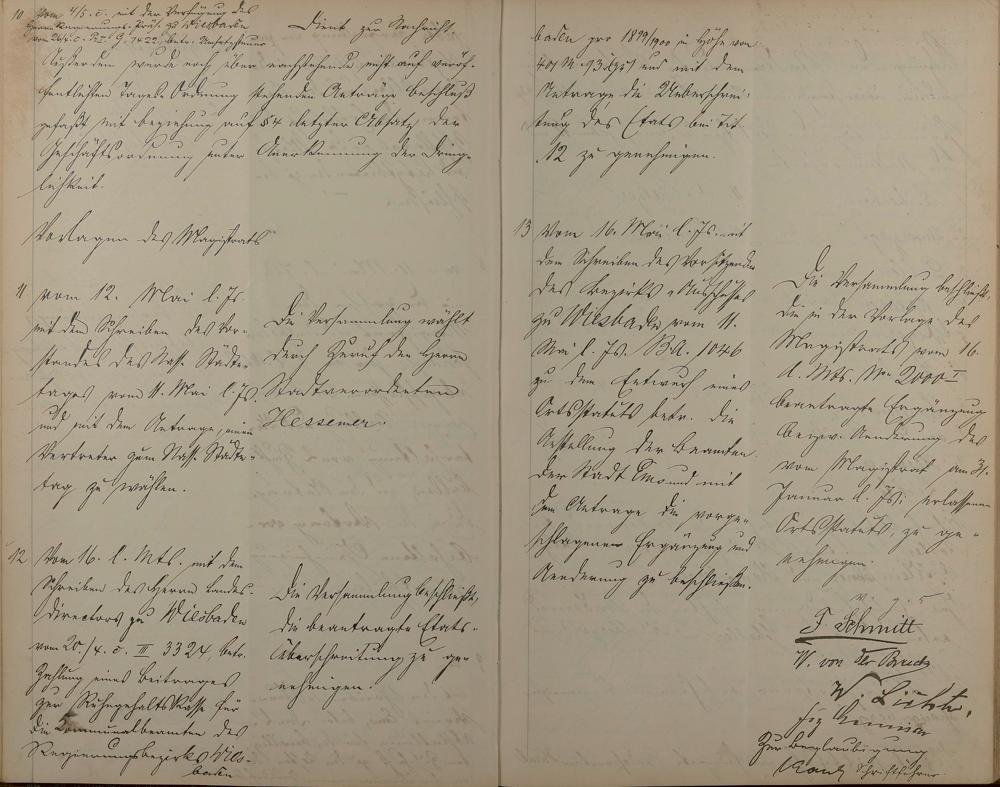 10 Vom 4/5. c. mit der Verfügung des
Herrn Regierungs-Präs. zu Wiesbaden
vom 26/4. c. Pr. I G. 1422, betr.
Dient zur Nachricht.
Außerdem wurde noch über nachstehende nicht auf der veröf-
fentlichten Tages-Ordnung stehenden Anträge Beschluß
gefaßt mit Beziehung auf § 4 letzter Absatz der
Geschäftsordnung unter Anerkennung der Dring-
lichkeit.
Vorlagen des Magistrats
11 Vom 12. Mai l. Js.
mit dem Schreiben des Vor-
standes des Nass. Städte-
tages vom 11. Mai l. Js.
und mit dem Antrage, einen
Vertreter zum Nass. Städte-
tag zu wählen.
Die Versammlung wählt
durch Zuruf den Herrn
Stadtverordneten
Hessemer.
12 Vom 16. l. Mts. mit dem
Schreiben des Herrn Landes-
directors zu Wiesbaden
vom 20./4. c. III 3324, betr.
Zahlung eines Beitrages
zur Ruhegehaltskasse für
die Communalbeamten des
Regierungsbezirks Wies-
baden
Die Versammlung beschließt,
die beantragte Etats-
überschreitung zu ge-
nehmigen.
baden pro 1899/1900 in Höhe von
401 M. 93 Pfg. und mit dem
Antrage die Ueberschrei-
tung des Etats bei Tit.
12 zu genehmigen.
13 Vom 16. Mai l. Js. mit
dem Schreiben des Vorsitzenden
des Bezirks-Ausschusses
zu Wiesbaden vom 11.
Mai l. Js. B.A. 1046
zu dem Entwurf eines
Ortsstatuts betr. die
Anstellung der Beamten
der Stadt und mit
dem Antrage die vorge-
schlagenen Ergänzung und
Aenderung zu beschließen.
Die Versammlung beschließt,
die in der Vorlage des
Magistrats vom 16.
d. Mts. No. 2000 I
beantragte Ergänzung
bezw. Aenderung des
vom Magistrat am 31.
Januar d. Js. erlassenen
Ortsstatuts, zu ge-
nehmigen.
v. g. u.
F. Schmitt
W. von der
W.
Zur Beglaubigung
Schriftführer